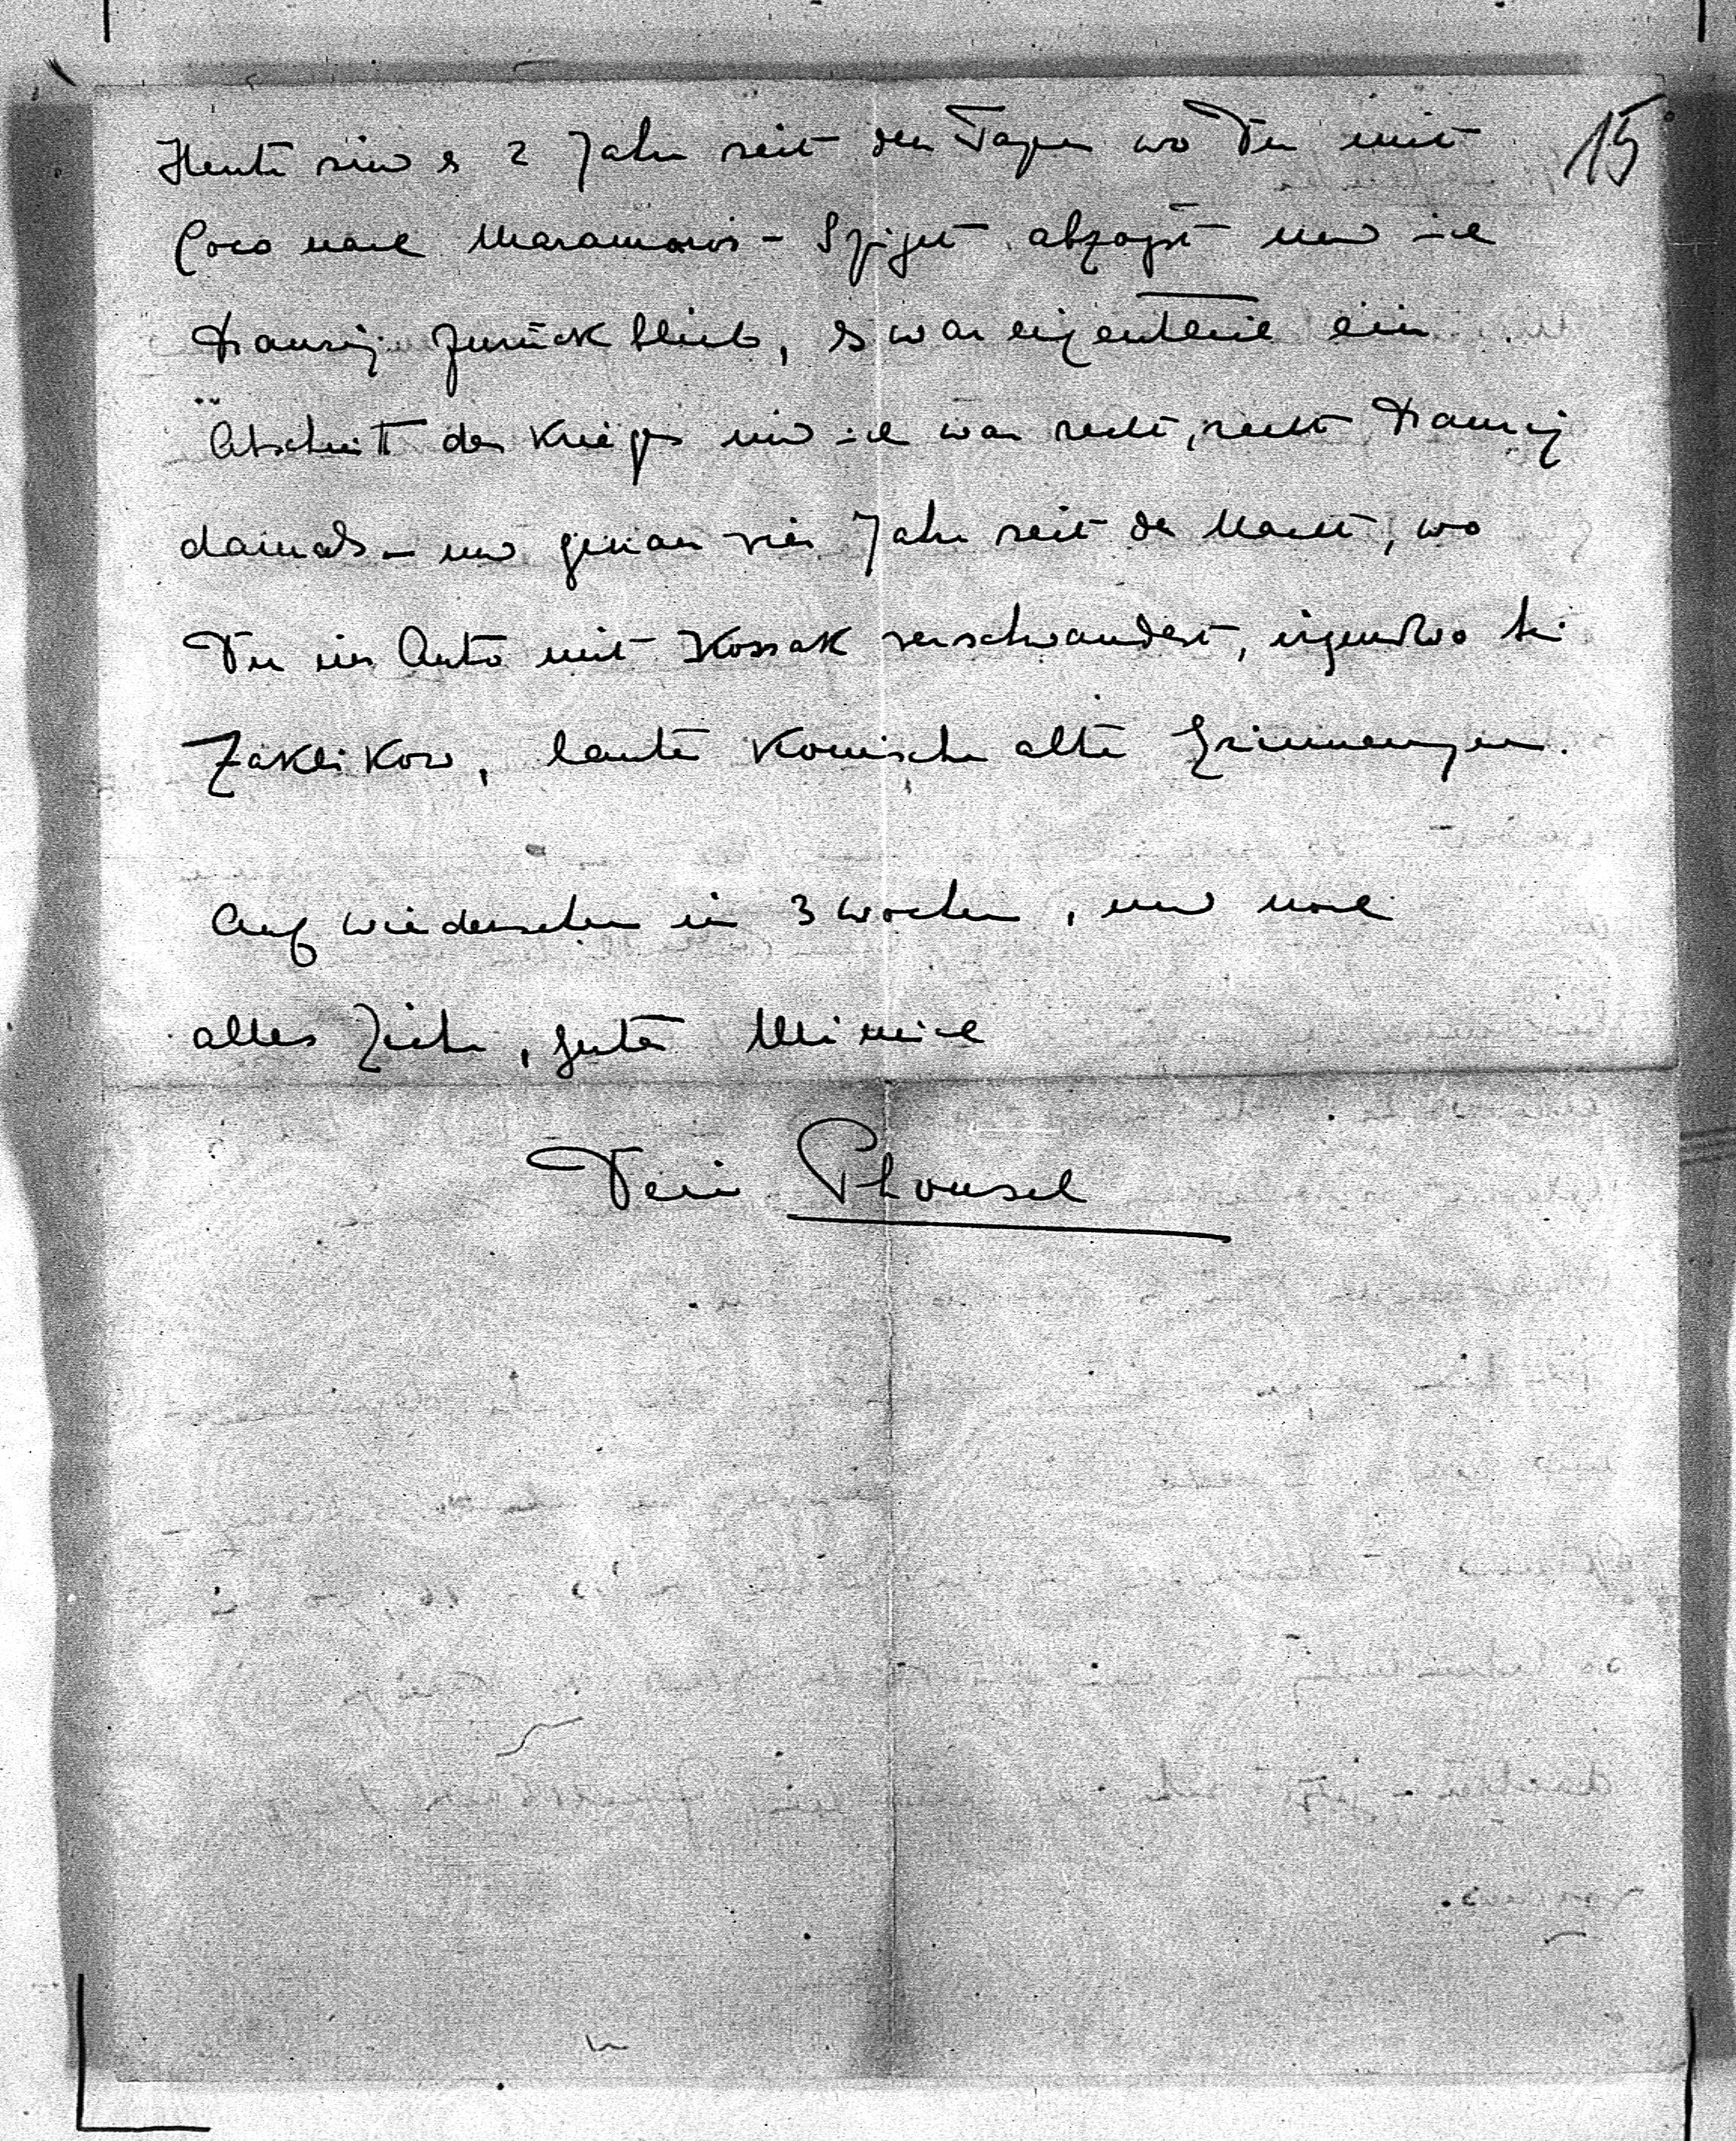 Heute sind es 2 Jahre seit den Tagen wo Du mit 15
Coco nach Maramaros-Sziget abzogst und ich
traurig zurückblieb, es war eigentlich ein
Abschnitt des Krieges und ich war recht, recht traurig
damals – und genau vier Jahre seit der Nacht, wo
Du im Auto mit Kossak verschwandest, irgendwo bei
Zaklikow, lauter komische alte Erinnerungen.
Auf wiedersehen in 3 Wochen, und noch
alles Liebe, guter
Dein